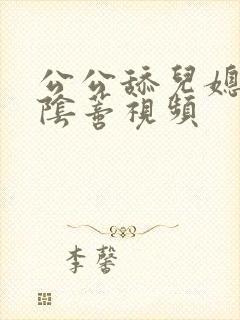 公公舔兒媳
陰蒂視頻
李馨